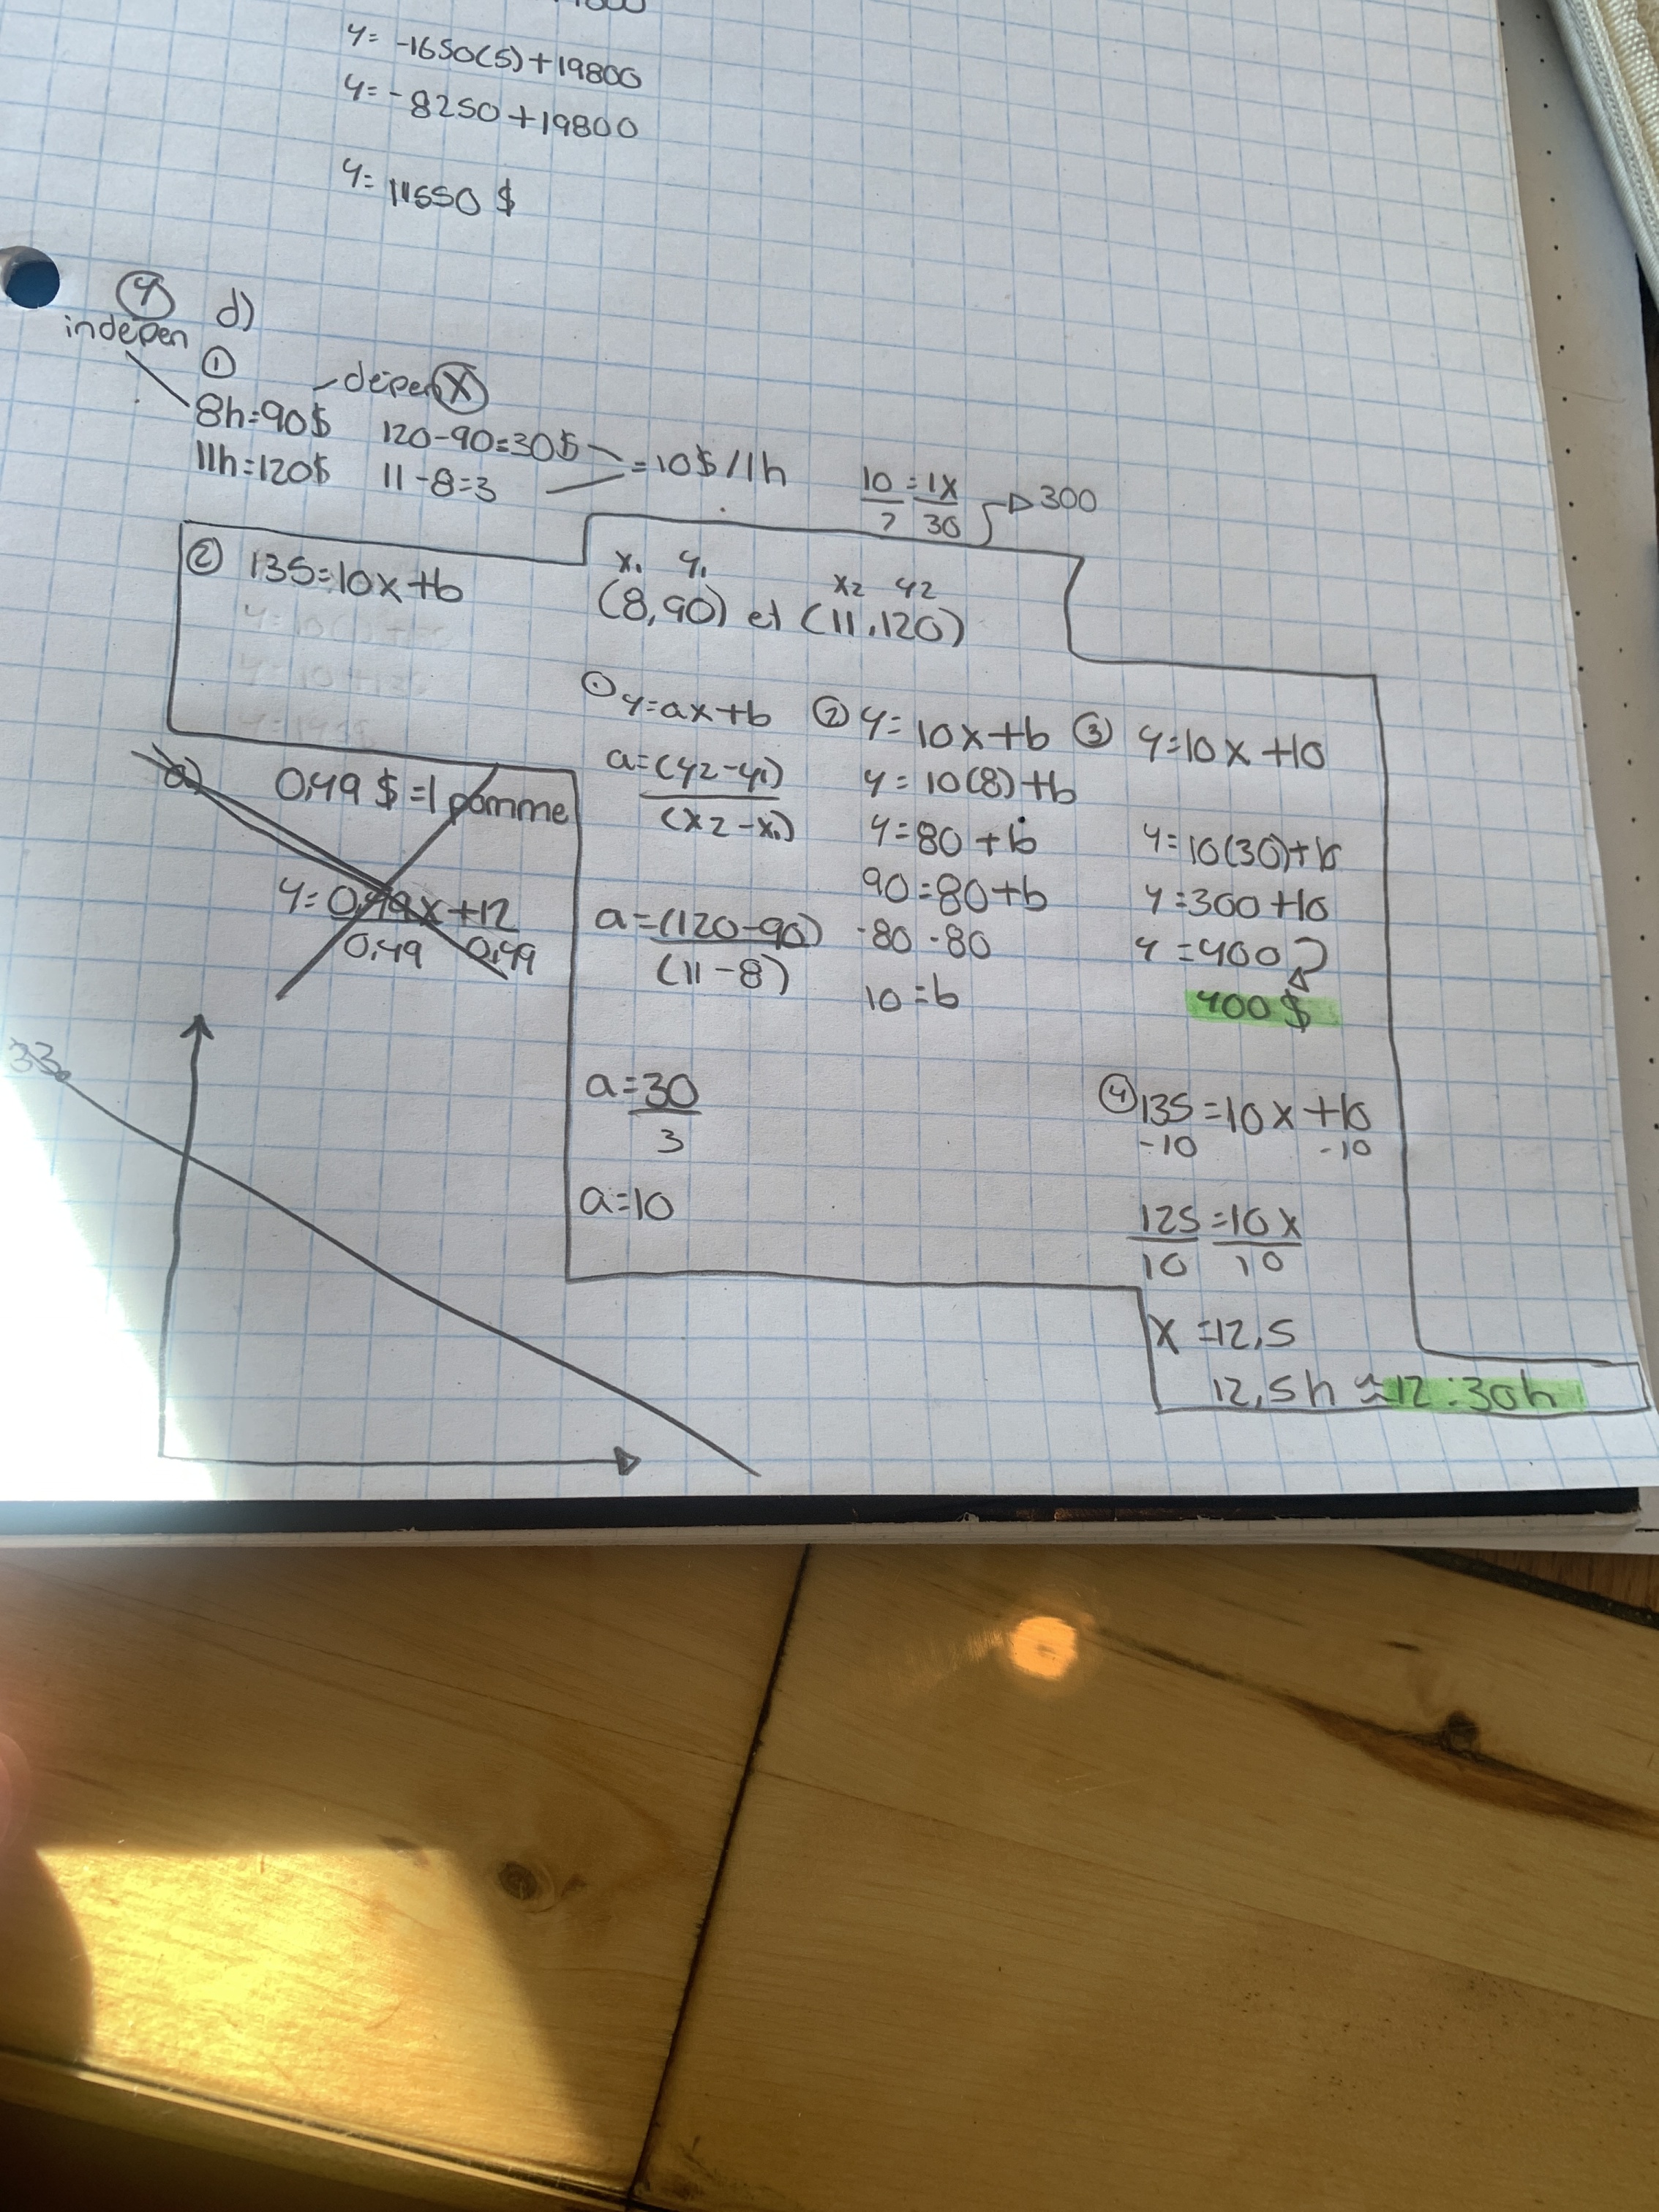 y= -1650(5)+19800
y= -8250+19800
y= 11550 $
④ d)
indepen
①
depen Ⓧ
8h=90$ 120-90=30$ =10$/1h
11h=120$ 11-8=3
10/? = 1x/30 → 300
② 135=10x+b
x₁ y₁ x2 y2
(8,90) et (11,120)
① y=ax+b
a=(y2-y1)
(x2-x1)
a=(120-90)
(11-8)
a=30
3
a=10
② y=10x+b
y=10(8)+b
y=80+b
90=80+b
-80 -80
10=b
③ y=10x+10
y=10(30)+10
y=300+10
y=400
400$
④ 135=10x+10
-10 -10
125=10x
10 10
x=12,5
12,5h ≈12:30h
a)
0,49$=1 pomme
y=0,49x+12
0,49 0,49
33